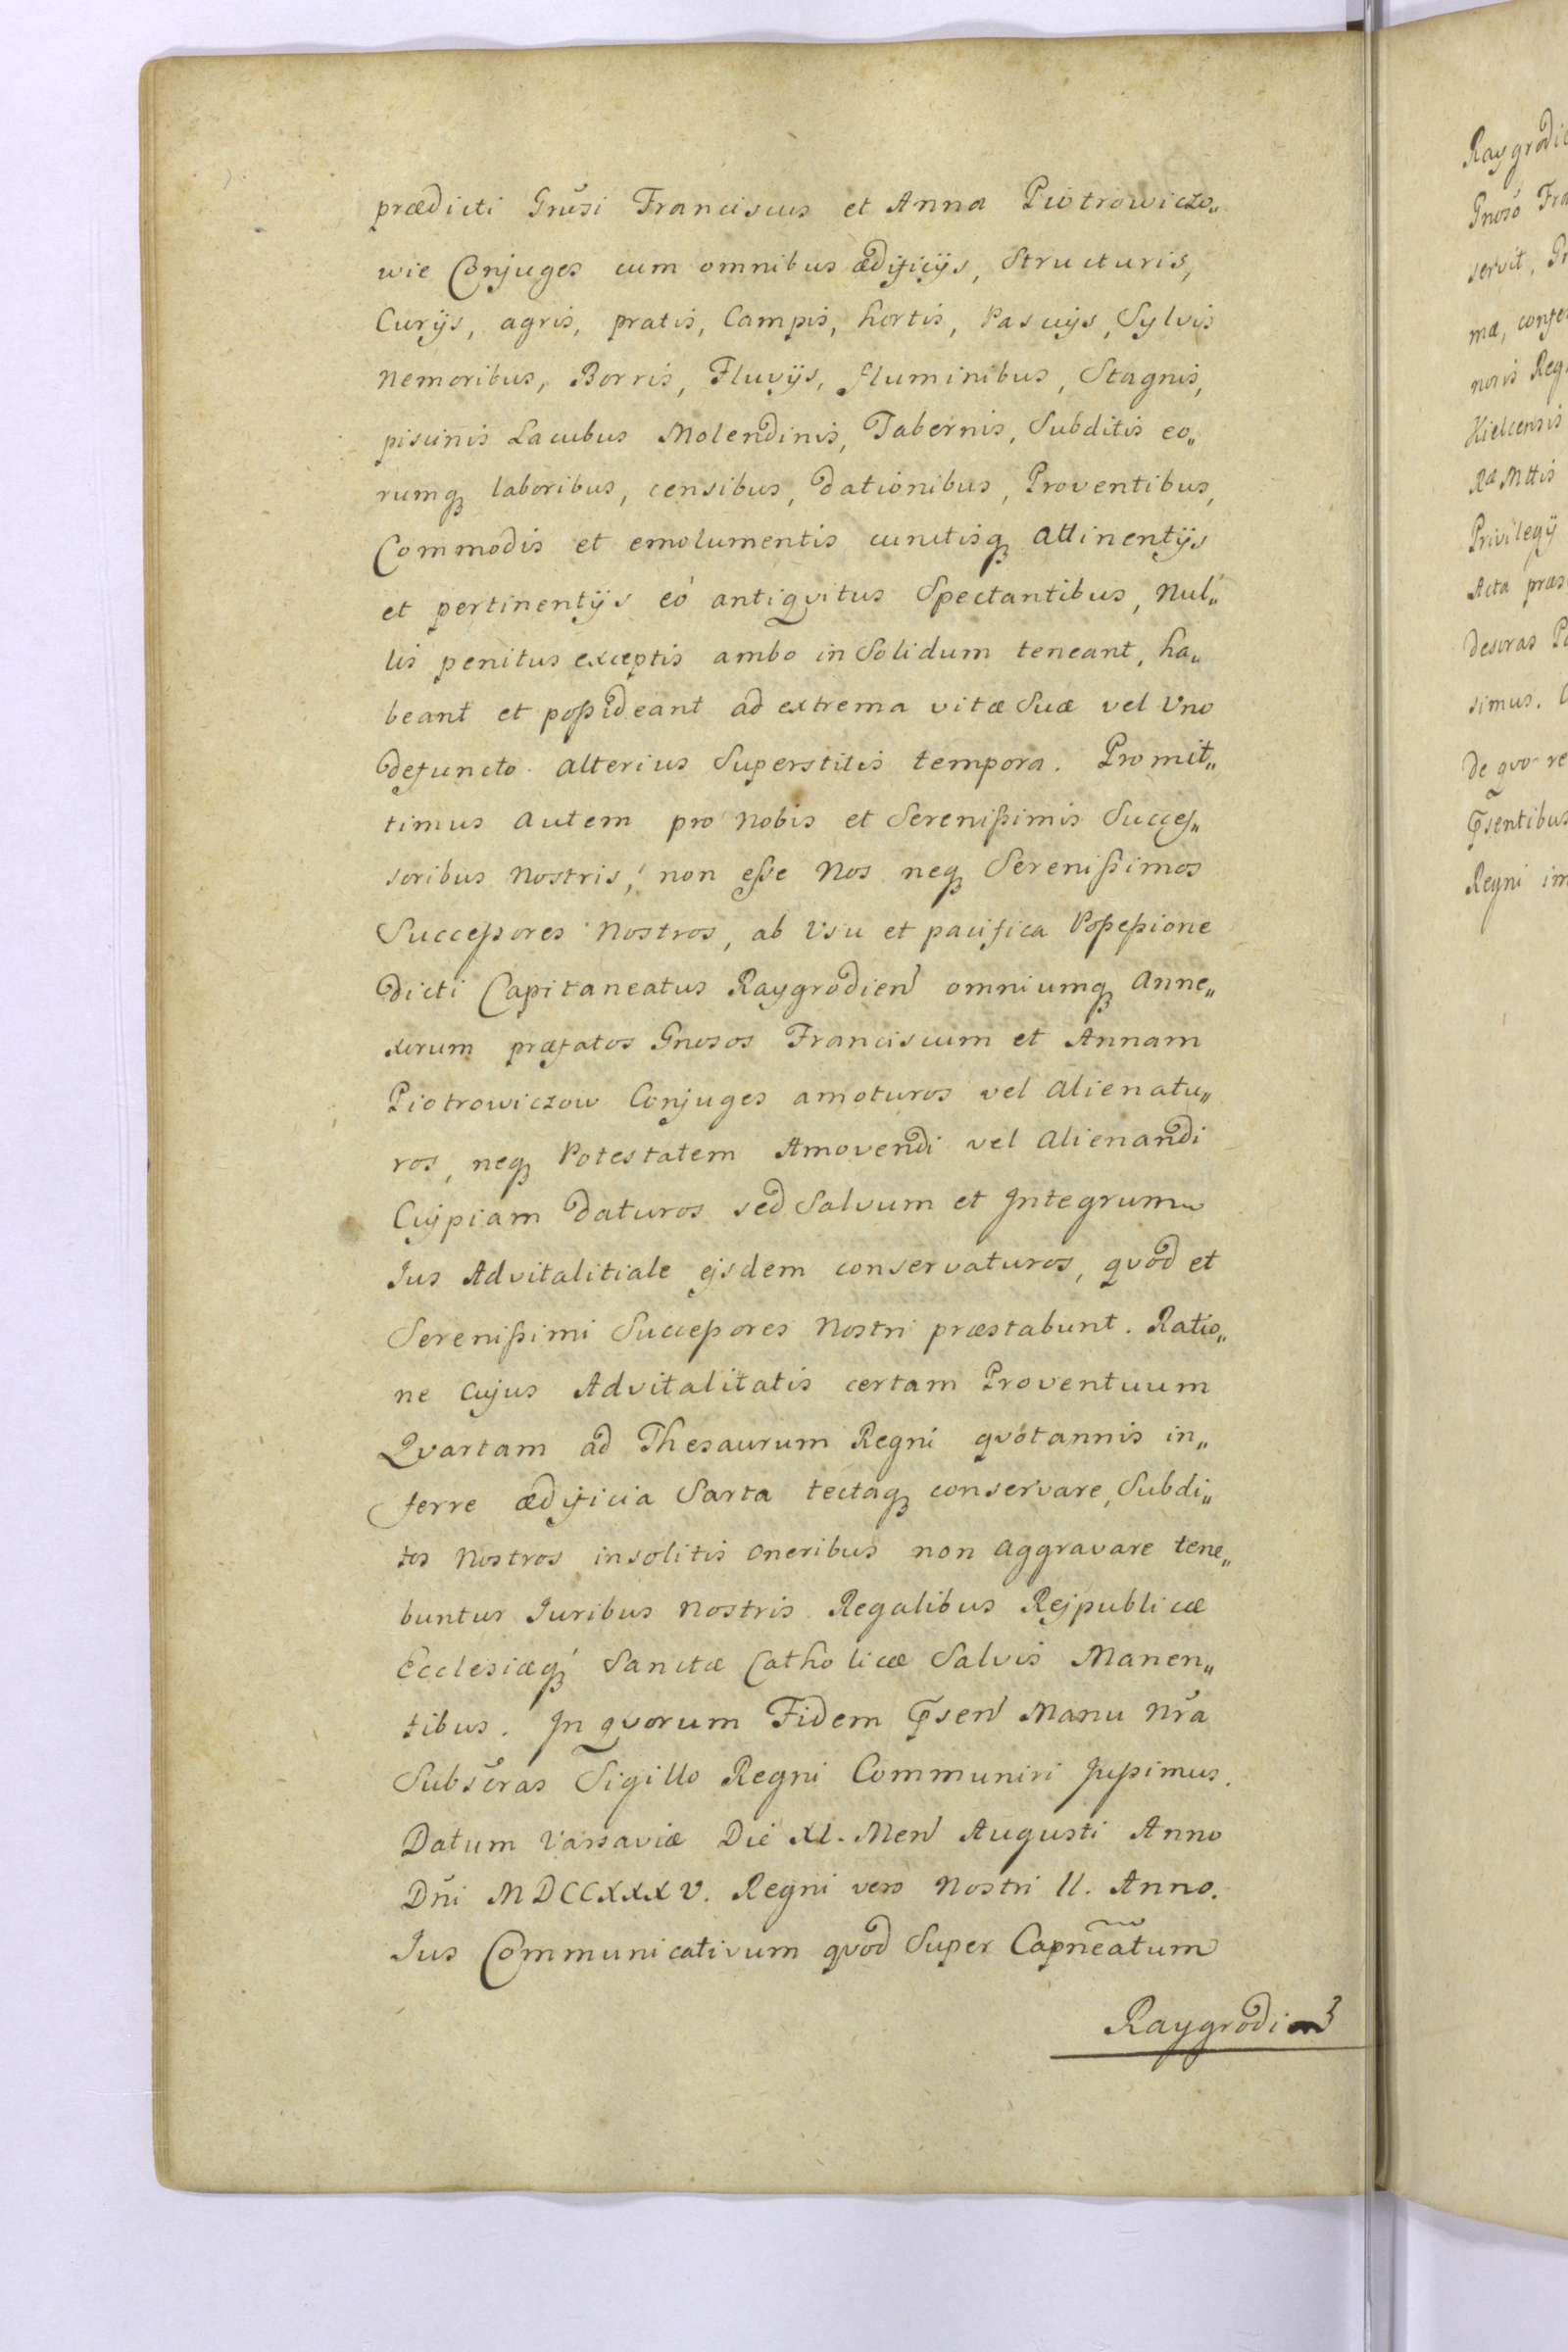 prædicti Gnusi Franciscus et Anna Piotrowiczo„
wie Conjuges cum omnibus ædificijs, Structuris,
Curijs, agris, pratis, Campis, hortis, Pascuijs, Sylvis
Nemoribus, Borris, Fluvijs, fluminibus, Stagnis,
piscinis Lacubus Molendinis, Tabernis, Subditis eo„
rumq́ laboribus, censibus, dationibus, Proventibus,
Commodis et emolumentis cunctisq́ attinentijs
et pertinentijs eó antiqvitus Spectantibus, Nul„
lis penitus exceptis ambo in Solidum teneant, ha„
beant et poßideant ad extrema vitæ Suæ vel Vno
defuncto alterius Superstitis tempora. Promit„
timus autem pro Nobis et Serenißimis Succes„
soribus Nostris, non eße Nos neq́ Serenißimos
Succeßores Nostros, ab Vsu et pacifica Poßeßione
dicti Capitaneatus Raygrodien omniumq́ Anne„
xorum præfatos Gnosos Franciscum et Annam
Piotrowiczow Conjuges amoturos vel alienatu„
ros, neq́ Potestatem Amovendi vel alienandi
Cuipiam daturos sed Salvum et Integrum
Jus Advitalitiale ejsdem conservaturos, qvod et
Serenißimi Succeßores Nostri præstabunt. Ratio„
ne Cujus Advitalitatis certam Proventuum
Qvartam ad Thesaurum Regni qvotannis in„
ferre ædificia Sarta tectaq́ conservare, Subdi„
tos Nostros insolitis oneribus non aggravare tene„
buntur Juribus Nostris Regalibus Rejpublicæ
Ecclesiæq́ Sanctæ Catholicæ Salvis Manen„
tibus. In qvorum Fidem Psen Manu Nrã
Subscras Sigillo Regni Communiri Jußimus.
Datum Varsaviæ Die XI. Men Augusti Anno
Dñi MDCCXXXV. Regni vero Nostri II. Anno.
Jus Communicativum qvod Super Capneatum
Raygrodien
Raygrodie
Gnoso Fra
servit, Gn
mæ, confe
noris Reg
Kielcensis
Ræ Mttis
Privilegij
Acta præs
Descras
simus.
De qvo re
Psentibus
Regni im